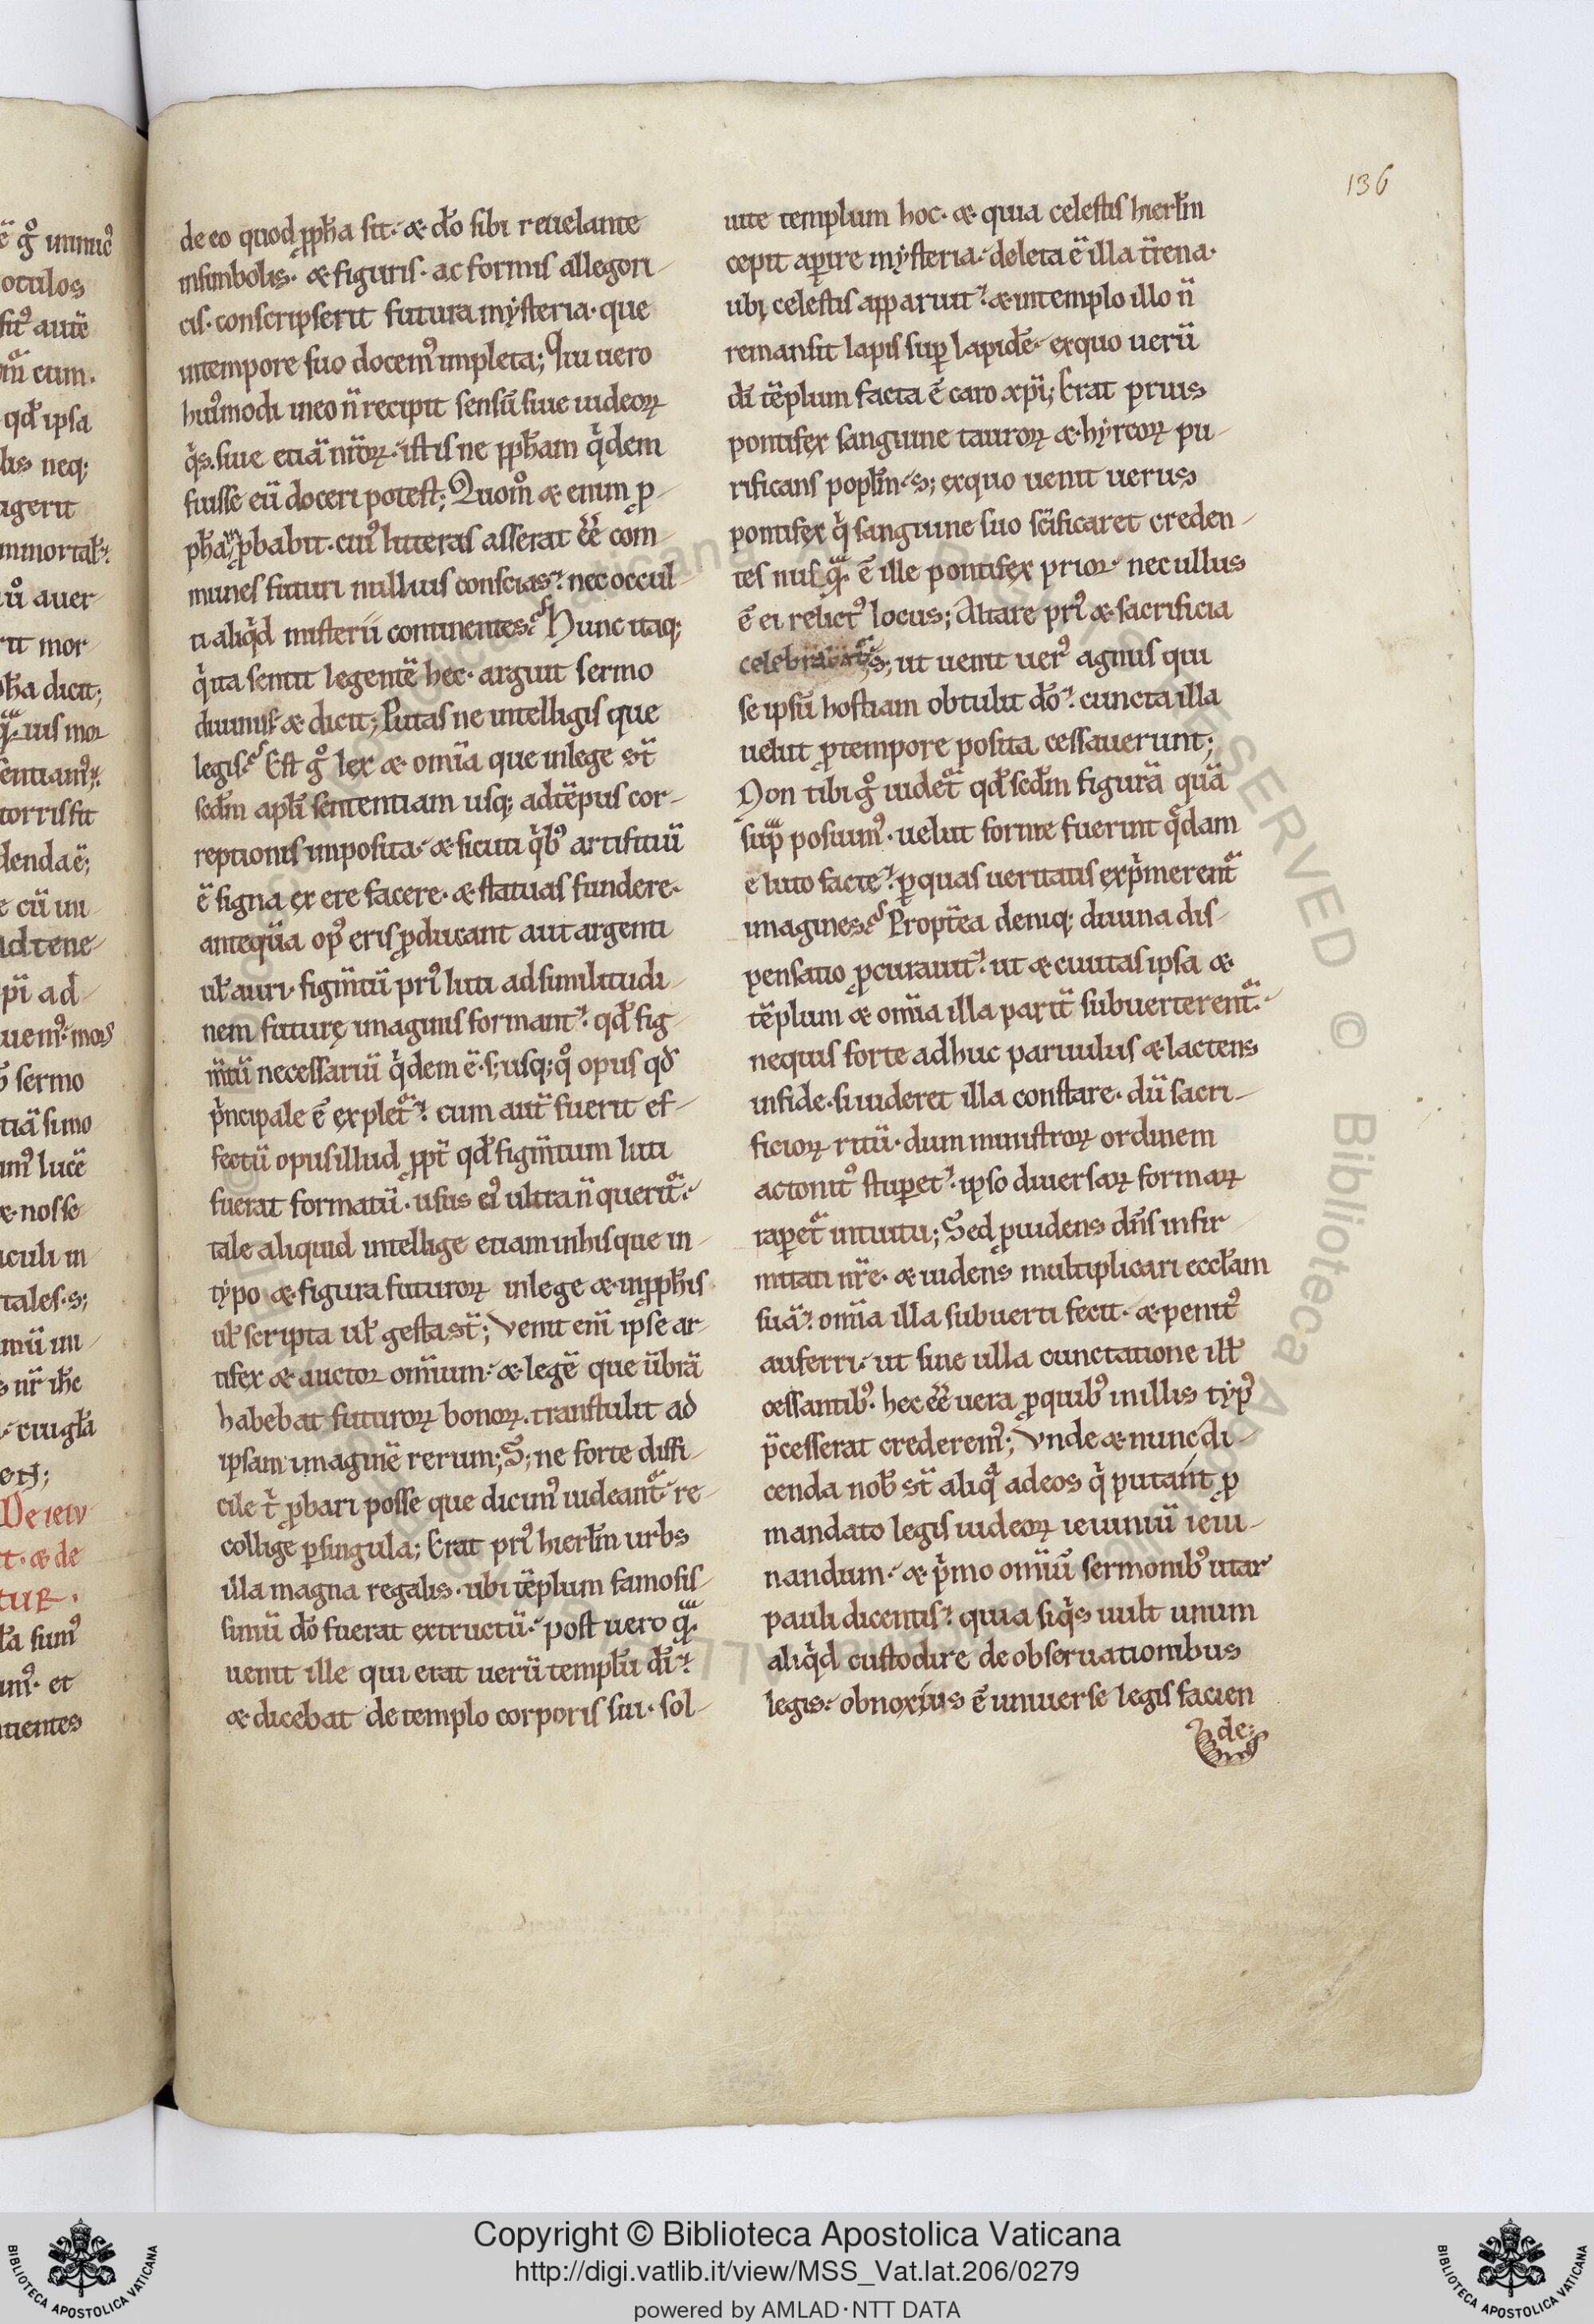 136
ē gͦ inimicꝰ
oculos
sitꝰ autē
om̄ eum.
qd̄ ipsa
lis neqꝫ
agerit
immortal̄
uͦ auer
rit mor
ph̄a dicit;
uis mor
sentiamꝰ
torris sit
denda ē;
e cū un
ad tene
pi ad
uemꝰ mors
sermo
tiā simo
imꝰ lucē
æ nosse
iculi in
tales. s;
imū un
nr̄ ih̄c
cui gl̄a
EN;
De ieiu
t. æ de
TUR.
sumꝰ
imꝰ et
tientes
de eo quod ꝓph̄a sit. æ dō sibi reuelante
insimbolis. æ figuris. ac formis allegori-
cis. conscripserit futura mysteria. que
intempore suo docemꝰ impleta; Qui uero
huiꝰmodi in eo n̄ recipit sensū siue iudeoꝝ
qͥs. siue etiā nr̄oꝝ. istis ne ꝓph̄am qͥdem
fuisse eū doceri potest; Quomͦ æ enim ꝓ-
ph̄ā ꝓbabit. cuiꝰ litteras asserat ēē com-
munes futuri nullius conscias. nec occul-
ti aliqͥd misterii continentes? Hunc itaqꝫ
qͥ ita sentit legentē hec. arguit sermo
diuinus æ dicit; Putas ne intelligis que
legis? Est gͦ lex æ om̄ia que inlege st̄
sed̄m apl̄i sententiam usqꝫ ad tēpus cor-
reptionis imposita. æ sicuti qͥbꝰ artifitiū
ē signa ex ere facere. æ statuas fundere.
antequā opꝰ eris ꝓducant aut argenti
ul̄ auri. figm̄tū priꝰ luti ad similitudi-
nem futurę imaginis formant. qd̄ fig-
m̄tū necessariū qͥdem ē. s; usqꝫ qͦ opus qd̄
pͥncipale ē expletᷓ. cum aut̄ fuerit ef-
fectū opus illud ꝓpt̄ qd̄ figm̄tum luti
fuerat formatū. usus eiꝰ ultra n̄ queritᷓ.
tale aliquid intellige etiam in his que in
typo æ figura futuroꝝ inlege æ inꝓph̄is
ul̄ scripta ul̄ gesta st̄; Venit eni̅ ipse ar-
tifex æ auctor omium. æ legē que ūbrā
habebat futuroꝝ bonoꝝ. transtulit ad
ipsam imaginē rerum; S; ne forte diffi-
cile tͥ ꝓbari posse que dicimꝰ uideantᷓ re-
collige ꝑsingula; Erat priꝰ hierl̄m urbs
illa magna regalis. ubi tēplum famosis-
simū dō fuerat extructū. post uero qᷓ
uenit ille qui erat uerū templū dī.
æ dicebat de templo corporis sui. sol-
uite templum hoc. æ quia celestis hierl̄m
cepit aꝑire mysteria. deleta ē illa t̄rena.
ubi celestis apparuit. æ intemplo illo n̄
remansit lapis suꝑ lapidē. exquo uerū
dī tēplum facta ē caro xpī; Erat prius
pontifex sanguine tauroꝝ æ hyrcoꝝ pu-
rificans popl̄m. s; exquo uenit uerus
pontifex qͥ sanguine suo sc̄ificaret creden-
tes nusqᷓ ē ille pontifex prior. nec ullus
ē ei relictꝰ locus; Altare priꝰ æ sacrificia
celebrabantᷓ s; ut uenit uerꝰ agnus qui
se ipsū hostiam obtulit dō. cuncta illa
uelut ꝓtempore posita cessauerunt;
Non tibi gͦ uidetᷓ qd̄ sed̄m figurā quā
supᷓ posuimꝰ. uelut forme fuerint qᷓdam
e luto facte. ꝑ quas ueritatis expͥmerentᷓ
imagines? Propt̄ea deniqꝫ diuina dis-
pensatio ꝓcurauit. ut æ ciuitas ipsa æ
tēplum æ om̄ia illa parit̄ subuerterentᷓ.
nequis forte adhuc paruulus æ lactens
infide. si uideret illa constare. dū sacri-
ficioꝝ ritū. dum ministroꝝ ordinem
actonitꝰ stupet. ipso diuersaꝝ formaꝝ
rapetᷓ intuitu; Sed ꝓuidens dn̄s infir-
mitati nr̄e. æ uidens multiplicari eccl̄am
suā. om̄ia illa subuerti fecit. æ penitꝰ
auferri. ut sine ulla cunctatione ill̄
cessantibꝰ. hec ēē uera ꝓ quibꝰ in illis typꝰ
p̄cesserat crederemꝰ; Vnde æ nunc di-
cenda nob̄ st̄ aliqᷓ ad eos qͥ putant ꝓ
mandato legis iudeoꝝ ieiuniū ieiu-
nandum. æ pͥmo omiū sermonibꝰ utar
pauli dicentis. quia siqͥs uult unum
aliqͥd custodire de obseruationibus
legis. obnoxius ē uniuerse legis facien
de;
Copyright © Biblioteca Apostolica Vaticana
http://digi.vatlib.it/view/MSS_Vat.lat.206/0279
powered by AMLAD·NTT DATA
BIBLIOTECA APOSTOLICA VATICANA
BIBLIOTECA APOSTOLICA VATICANA